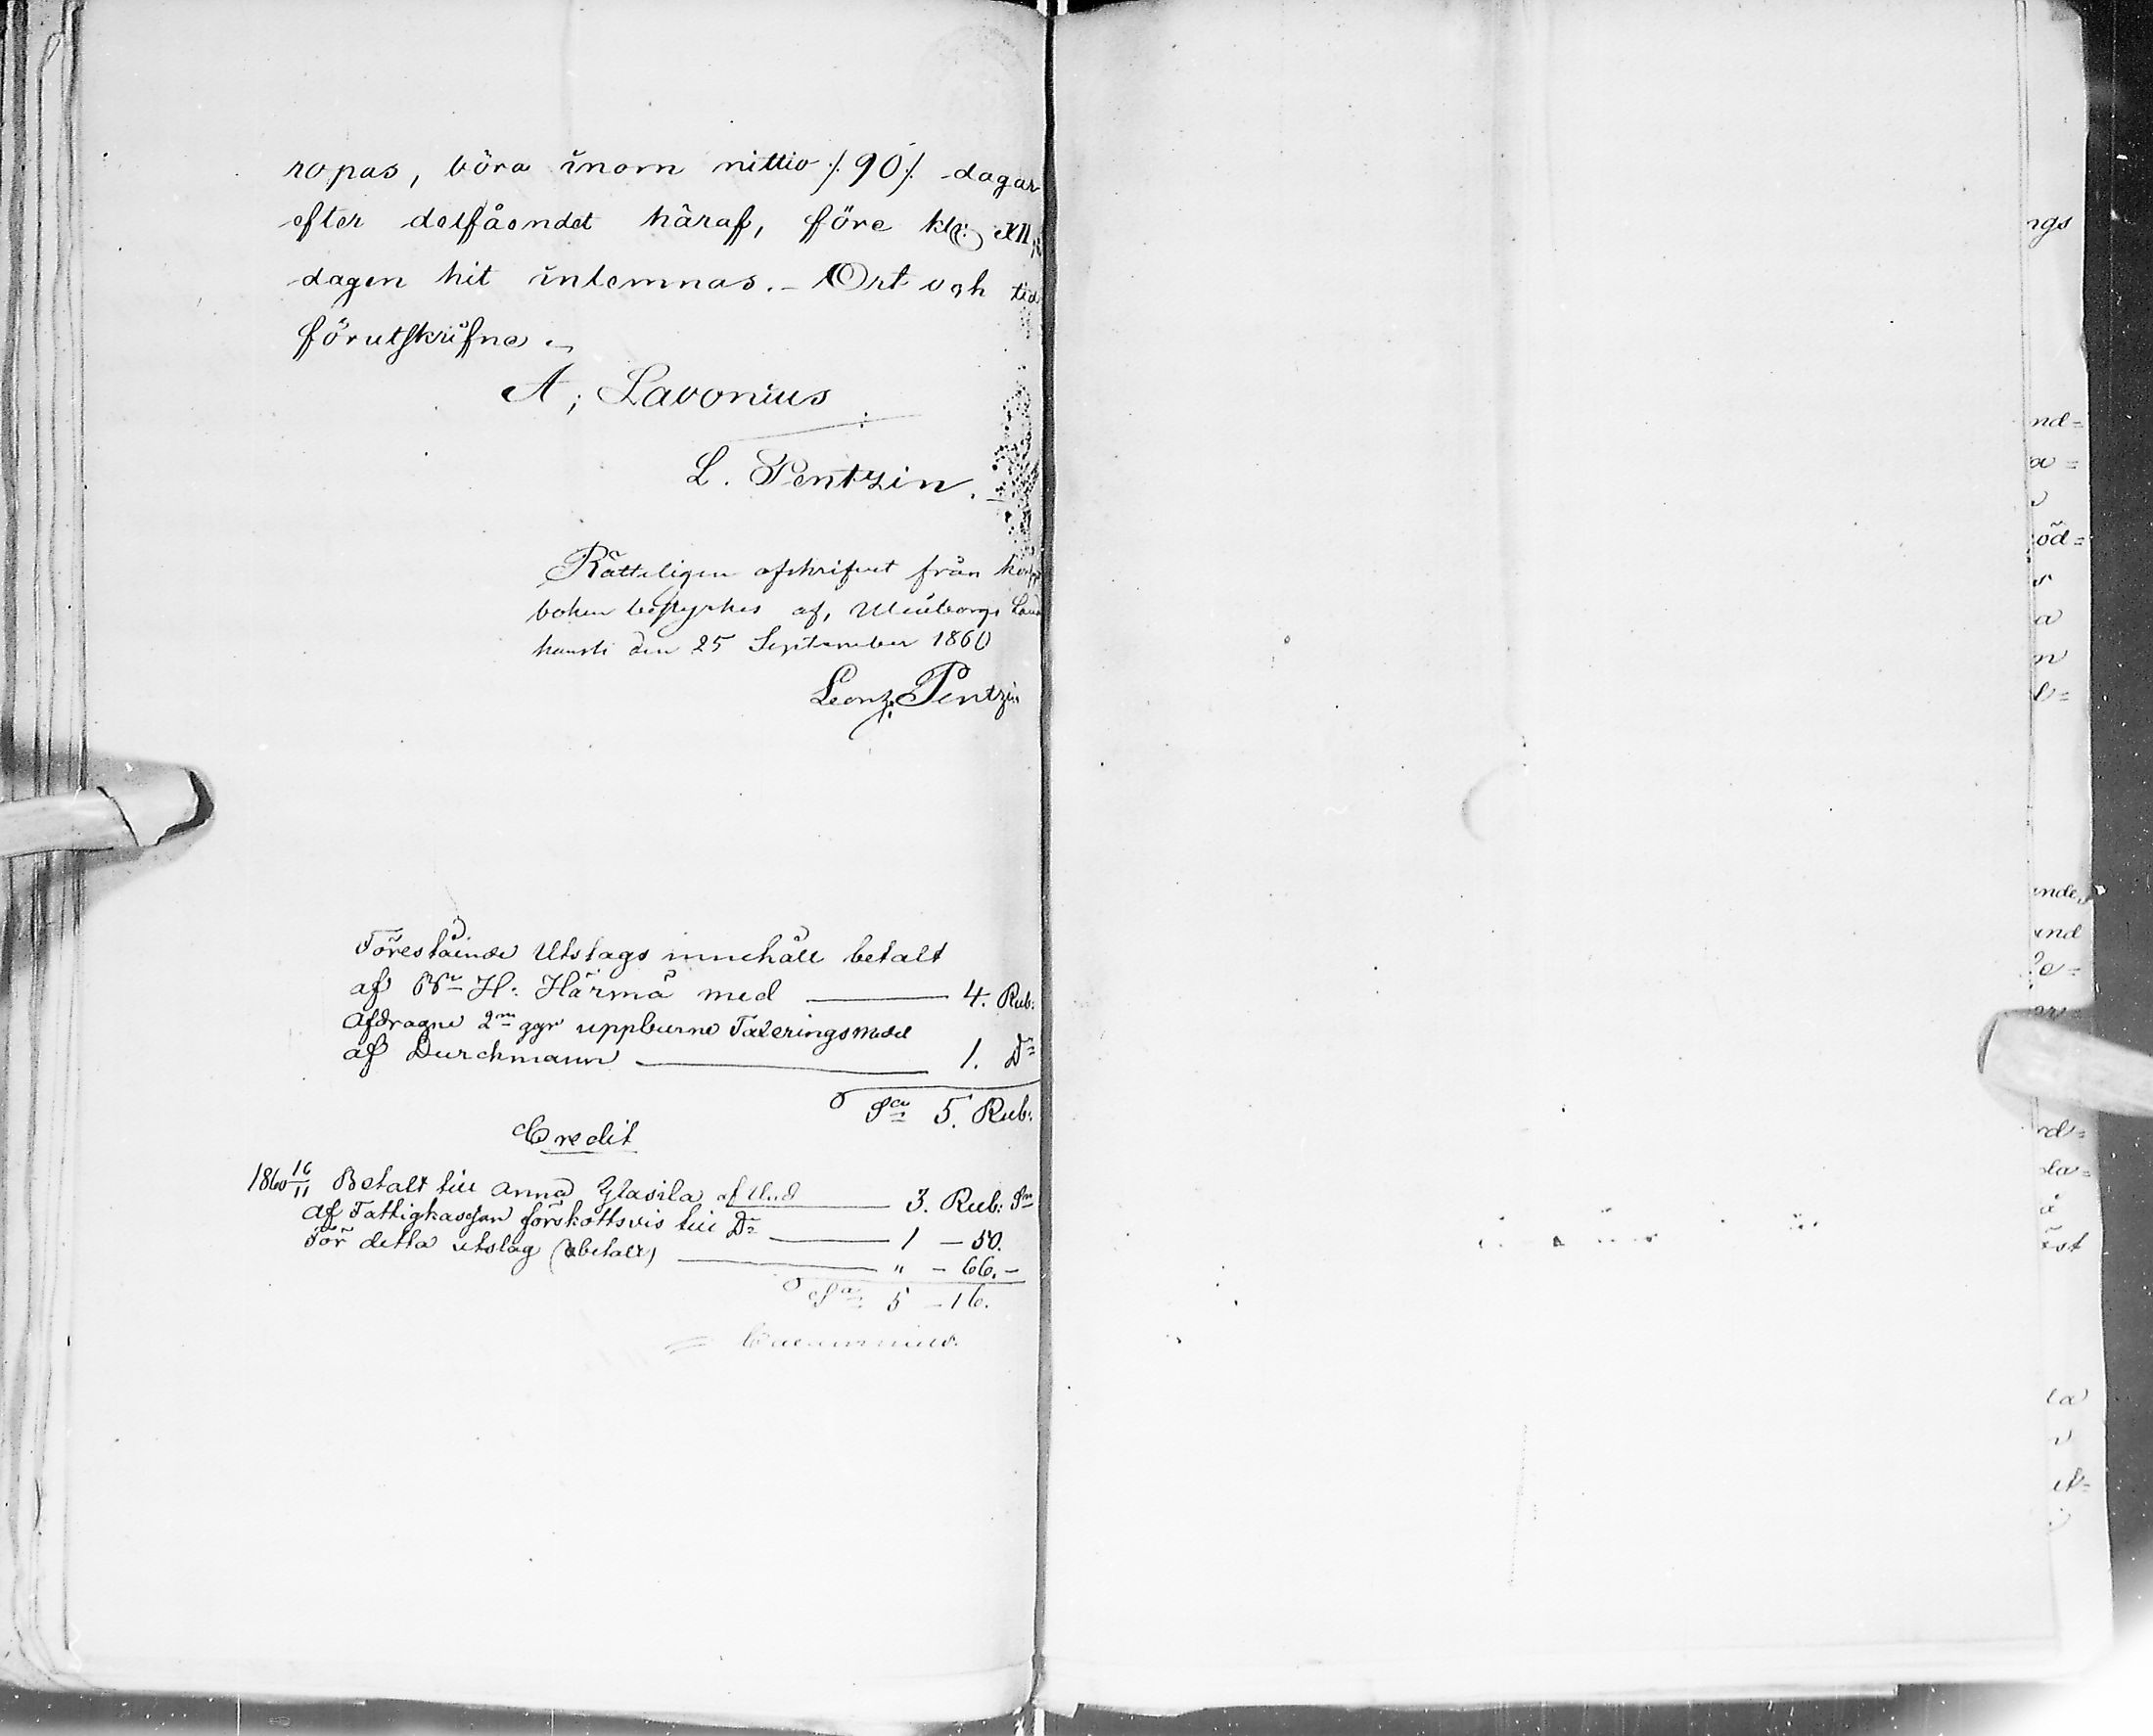 ropas, böra inom nittio /:90:/ dagar
efter delfåendet häraf, före klo: XII på
dagen hit inlemnas. – Ort och tid
förutskrifne. –
A; Lavonius
L. Pentzin.
Rätteligen afskrifvet från
boken bestyrkes af, Uleåborgs Lands
kansli den 25 September 1860
Leonh. Pentzin
Förestående Utslags innehåll betalt
af H: Härmä med 4. Rub:
Afdragne 2ne ggr uppburne Taxeringsmedel
af Durchmann 1. Do
Sa 5. Rub:
Credit
1860 16/11 Betalt till Anna Ylasila 3. Rub: Sr
Af Fattigkassan förskottsvis till Do 1 – 50.
För detta utslag (obetalt) " – 66. –
Sa 5 – 16.
ngs
nd=
a=
öd=
s
a
n
ande
und
rd=
sla=
å